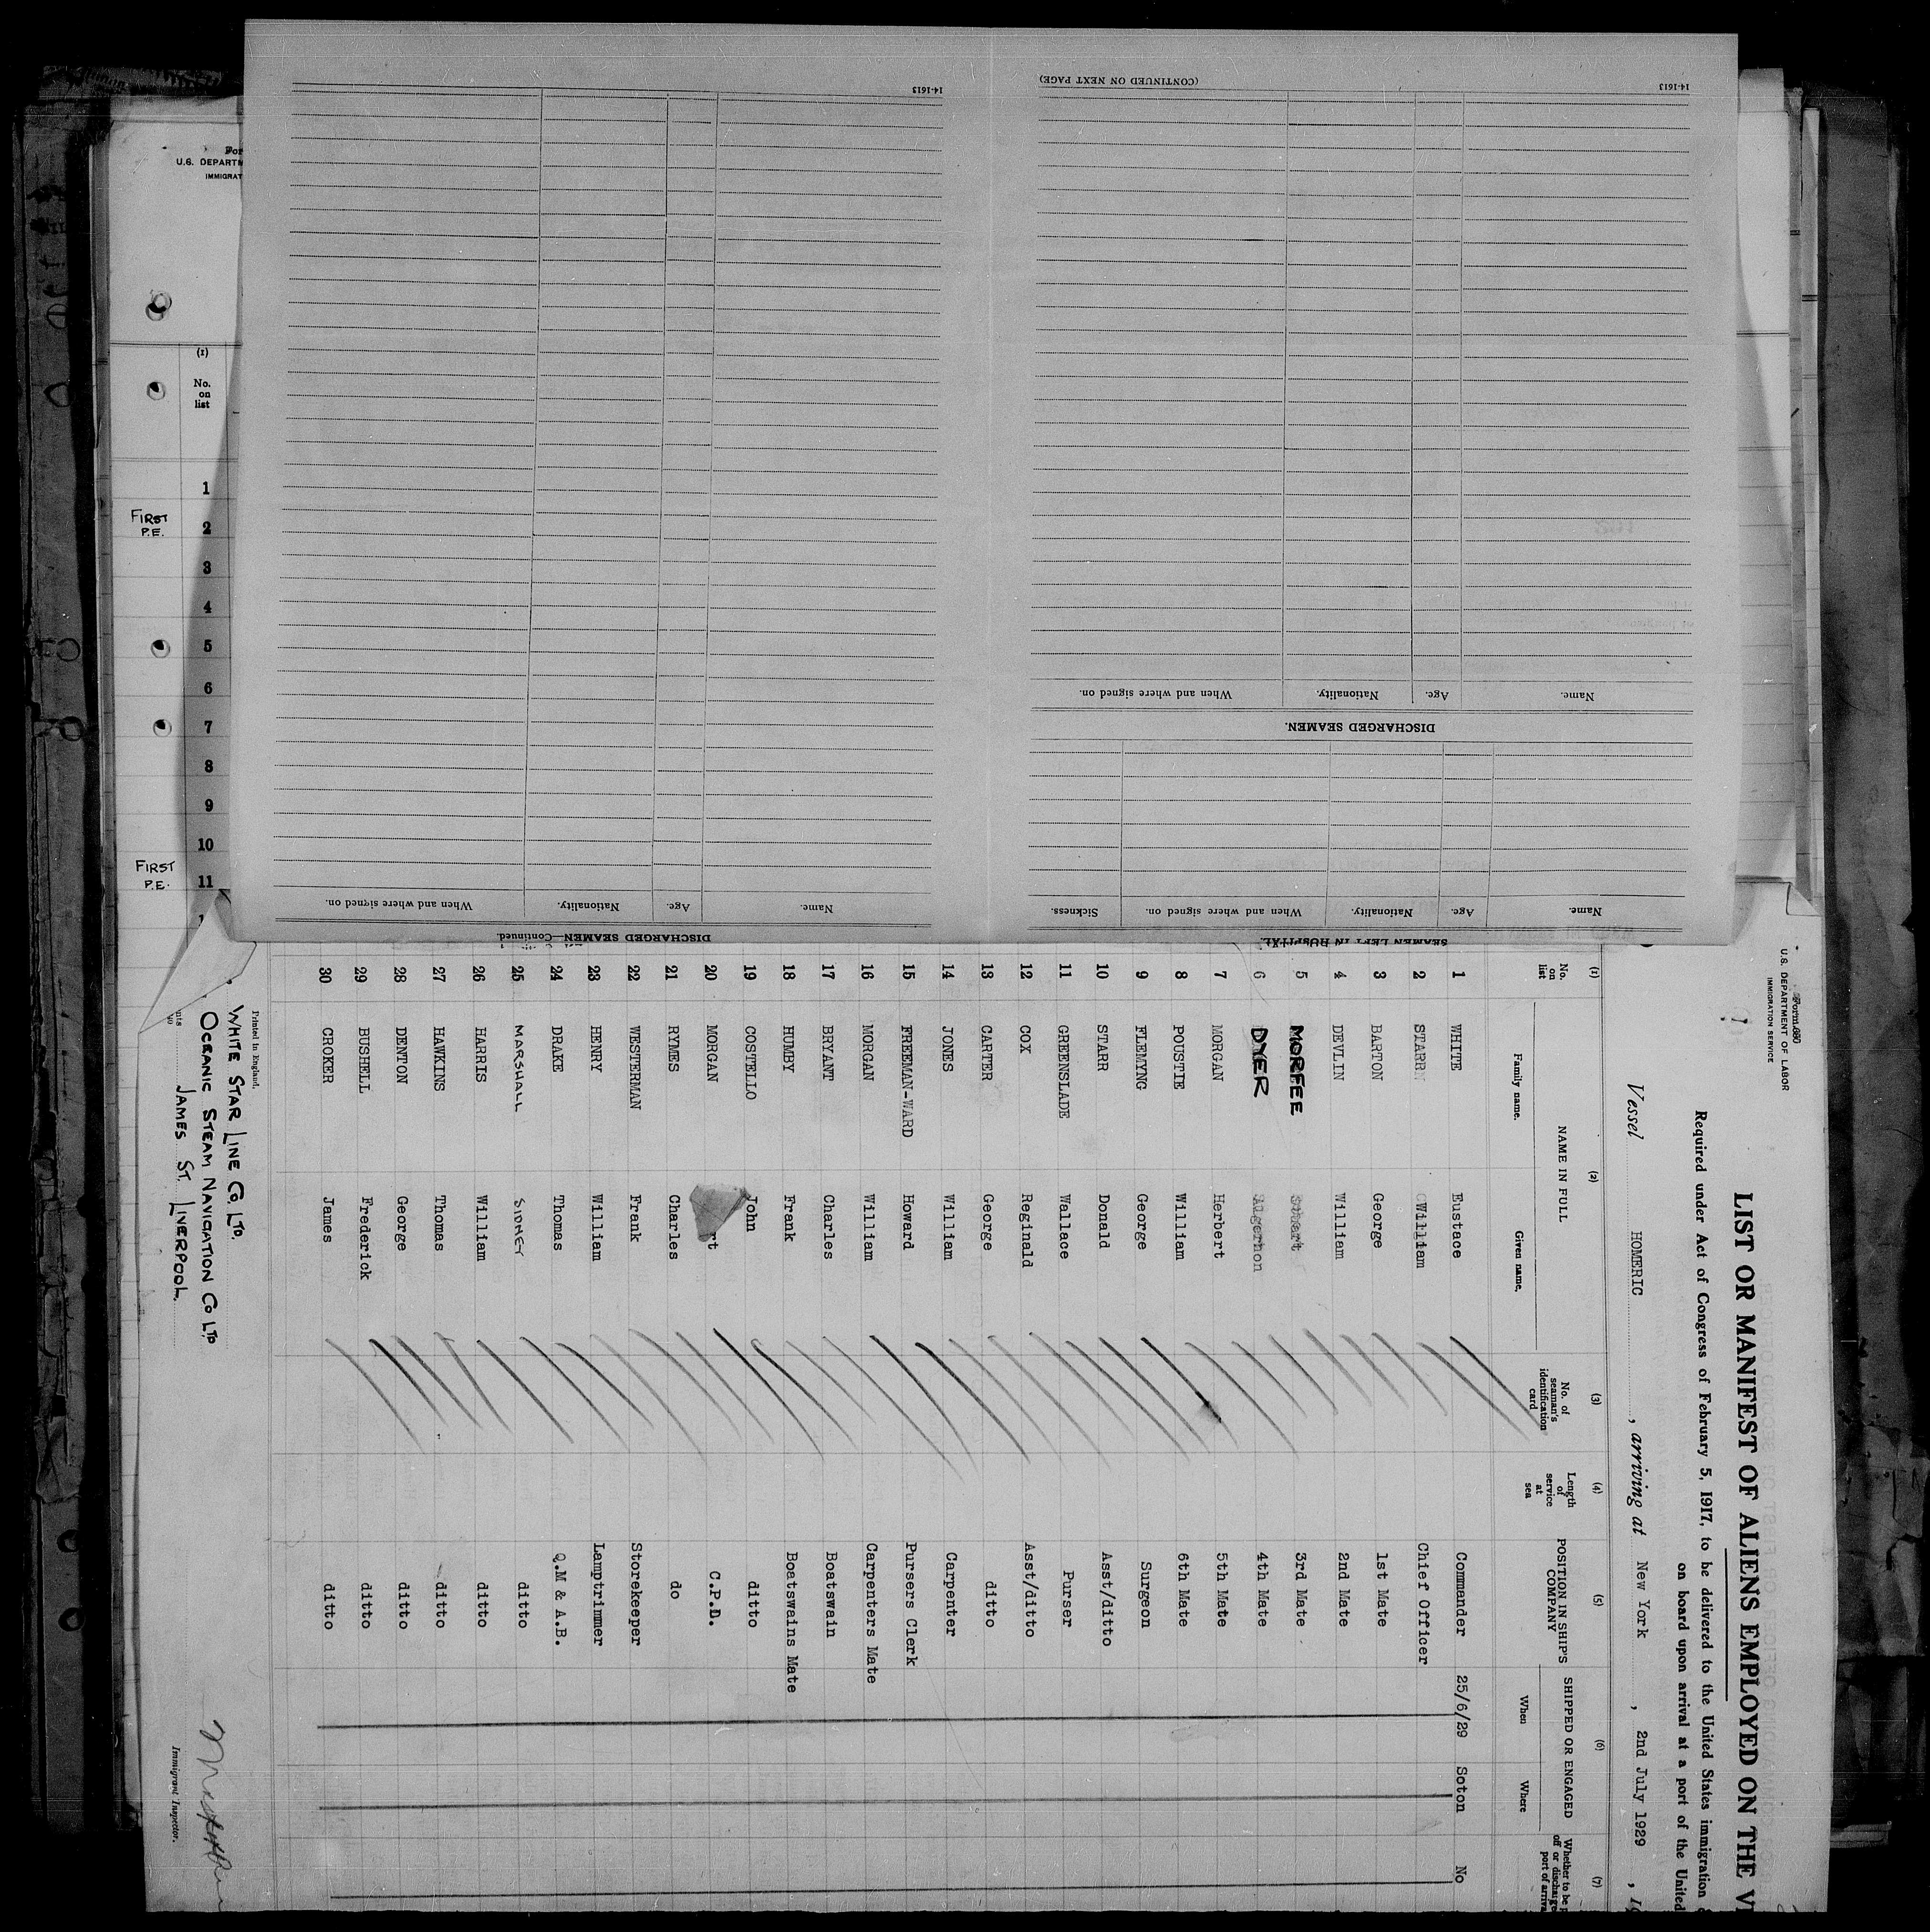 (CONTINUED ON NEXT PAGE)
14-1613
Name.
Age.
Nationality.
When and where signed on.
DISCHARGED SEAMEN.
Name.
Age.
Nationality.
When and where signed on.
Sickness.
SEAMEN LEFT IN HOSPITAL.
14-1613
Name.
Age.
Nationality.
When and where signed on.
DISCHARGED SEAMEN—Continued.
U.S. DEPARTM
IMMIGRAT
(1)
No.
on
list
1
FIRST
P.E.
2
3
4
5
6
7
8
9
10
FIRST
P.E.
11
U.S. DEPARTMENT OF LABOR
IMMIGRATION SERVICE
LIST OR MANIFEST OF ALIENS EMPLOYED ON THE
Required under Act of Congress of February 5, 1917, to be delivered to the United States immigration
on board upon arrival at a port of the United
Vessel HOMERIC , arriving at New York , 2nd July 1929 , 19
(1) (2) (3) (4) (5) (6) (7)
No. on list
NAME IN FULL
Family name. Given name.
No. of seaman's identification card
Length of service at sea
POSITION IN SHIP'S COMPANY
SHIPPED OR ENGAGED
When Where
Whether to be off or discharge port of arriva
1 WHITE Eustace Commander 25/6/29 Soton No
2 STARR William Chief Officer
3 BARTON George 1st Mate
4 DEVLIN William 2nd Mate
5 MORFEE 3rd Mate
6 DYER Algernon 4th Mate
7 MORGAN Herbert 5th Mate
8 POUSTIE William 6th Mate
9 FLEMYNG George Surgeon
10 STARR Donald Asst/ditto
11 GREENSLADE Wallace Purser
12 COX Reginald Asst/ditto
13 CARTER George ditto
14 JONES William Carpenter
15 FREEMAN-WARD Howard Pursers Clerk
16 MORGAN William Carpenters Mate
17 BRYANT Charles Boatswain
18 HUMBY Frank Boatswains Mate
19 COSTELLO John ditto
20 MORGAN rt C.P.D.
21 RYMES Charles do
22 WESTERMAN Frank Storekeeper
23 HENRY William Lamptrimmer
24 DRAKE Thomas Q.M & A.B.
25 MARSHALL SIDNEY ditto
26 HARRIS William ditto
27 HAWKINS Thomas ditto
28 DENTON George ditto
29 BUSHELL Frederick ditto
30 CROKER James ditto
Printed in England.
WHITE STAR LINE CO. LTD.
OCEANIC STEAM NAVIGATION CO LTD
JAMES ST. LIVERPOOL.
Immigrant Inspector.